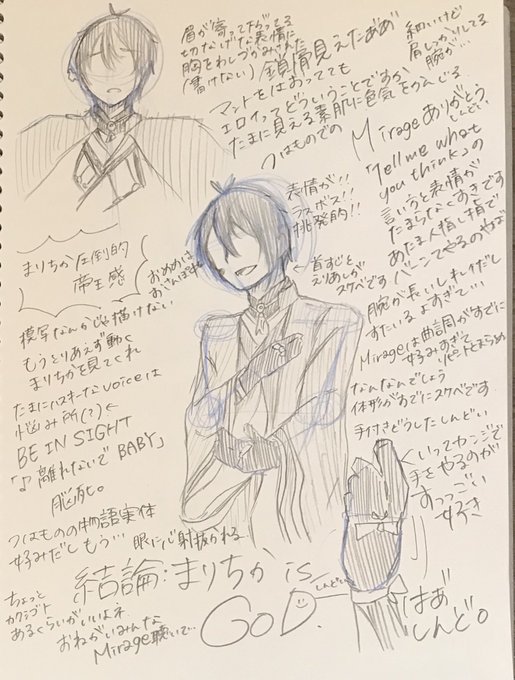 眉が寄ってて
切なげな表情に
胸をわしづかみされた
(書けない)
鎖骨見えたああ
細いけど
眉しっかりしてる
腕が…
マントをはおってても
エロイってどういうことですか
たまに見える素肌に色気をかんじる
つはものでの
Mirageありがとう
しんどい
「Tell me what
you think」の
言いうと表情が
たまらなくすきです
あたま人指し指で
バーンてやるのやば
表情が!!
ラスボス!!
挑発的!!
←首すじと
えりあしが
スケベです
まりちか圧倒的
帝王感
おめめは
模写なんかじゃ描けない
もうとりあえず動く
まりちかを見てくれ
たまにハスキーなvoiceは
悩み所(?)<
BE IN SIGHT
「♪離れないで BABY」
脳死。
腕が長いしキレイだし
すたいるよすぎて…
Mirageは曲調がすでに
好みすぎて
リピートとまらぬ
なんなんでしょう
体形がすでにスケベです
手付きどうしたしんどい
<いってカンジで
手をやるのが
すっっごい
好き
つはものの物語実体
好みだしもう…
眼に心射抜かれる
結論:まりちか is
GOD.
しんどい
ちょっと
カクシゴト
あるくらいがいいよネ
おねがいみんな
Mirage聴いて…
はあ
しんど。